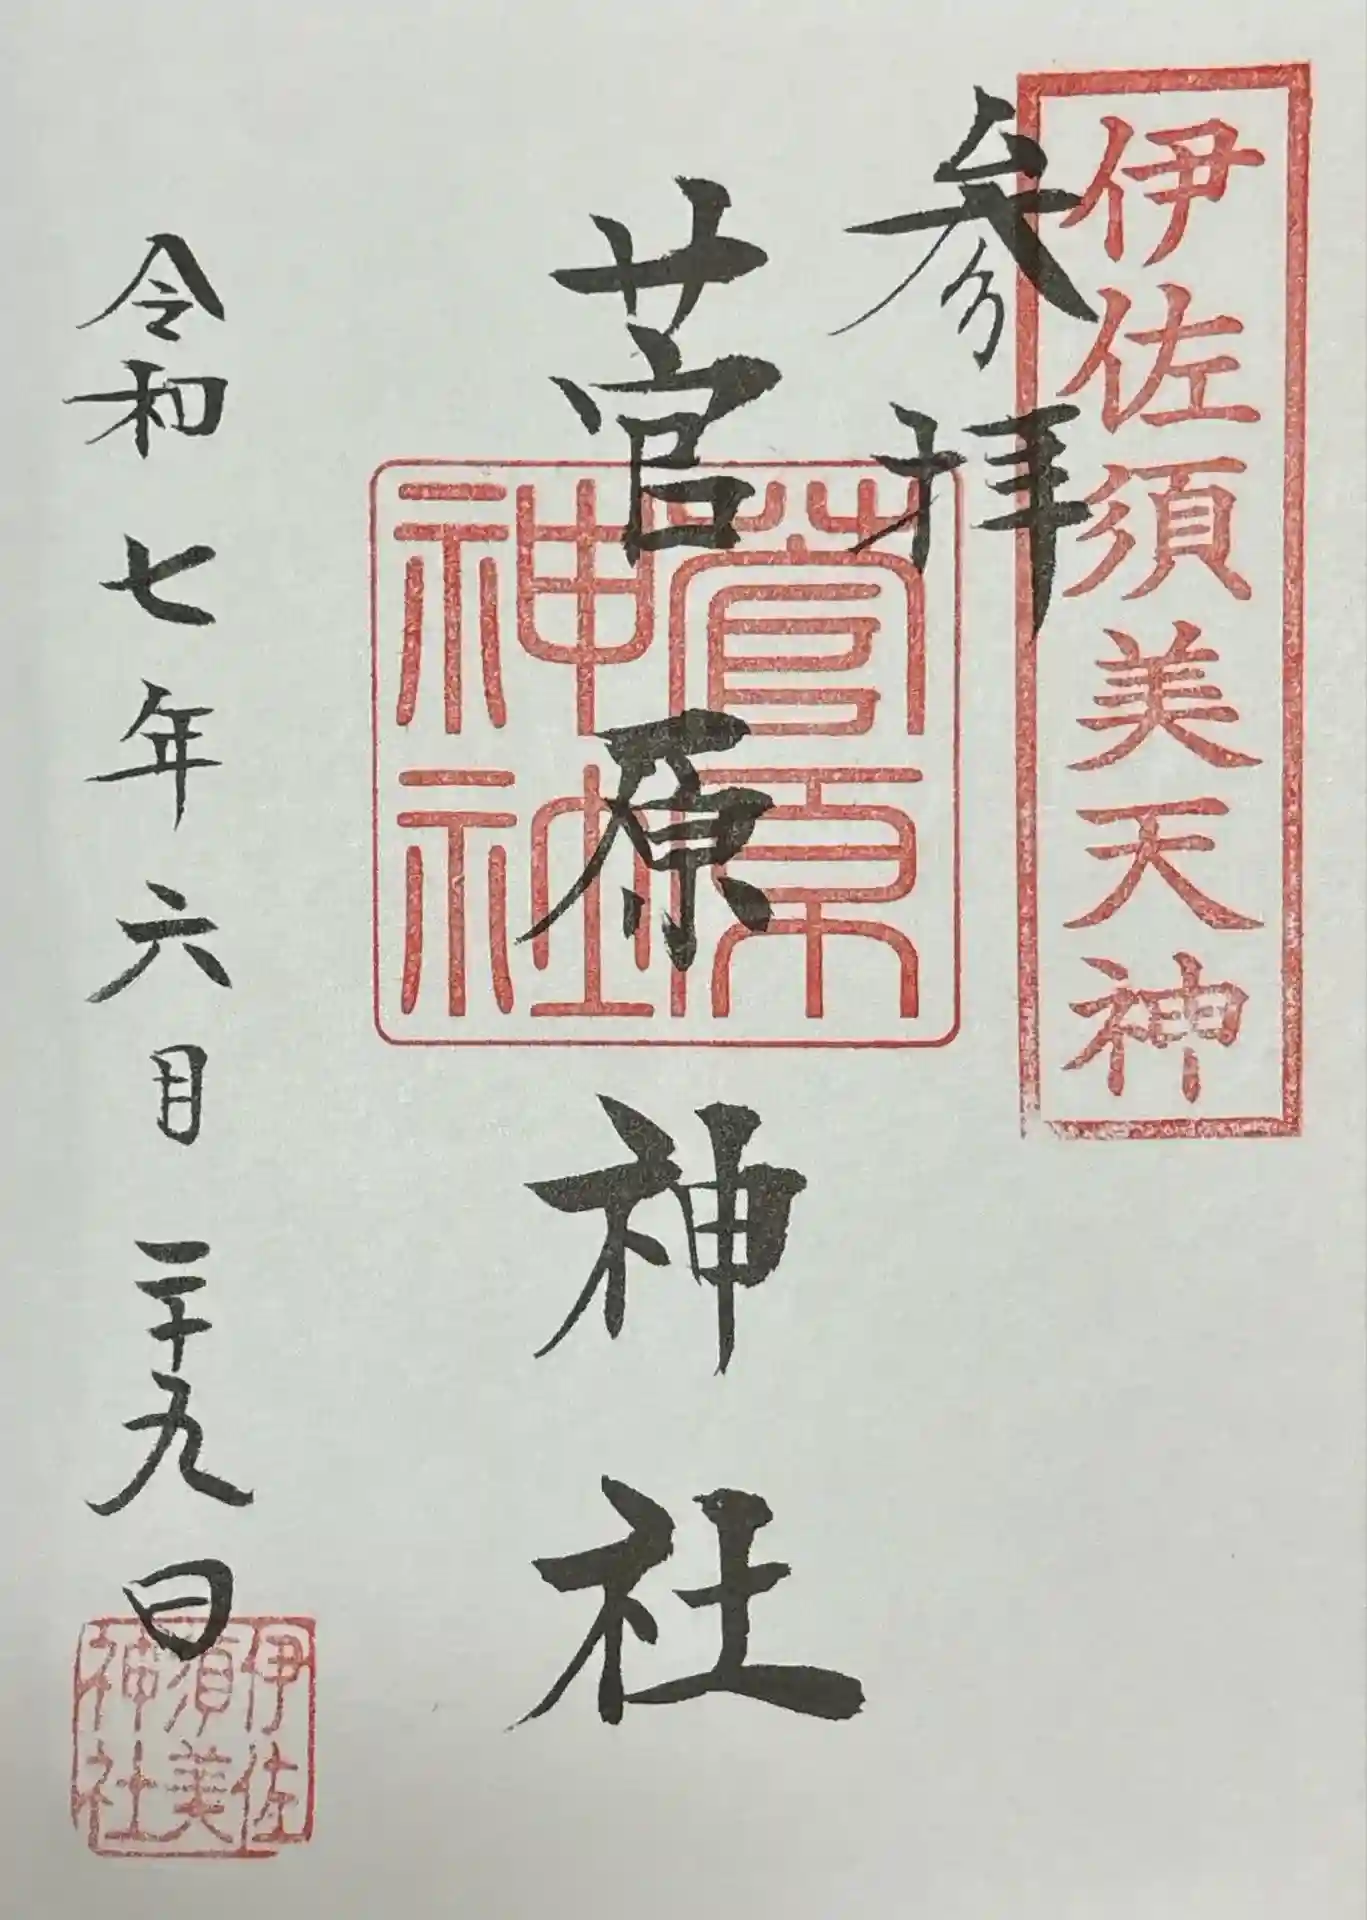 伊佐須美天神
参拝
菅原神社
菅原
神社
令和七年六月二十九日
伊佐
須美
神社